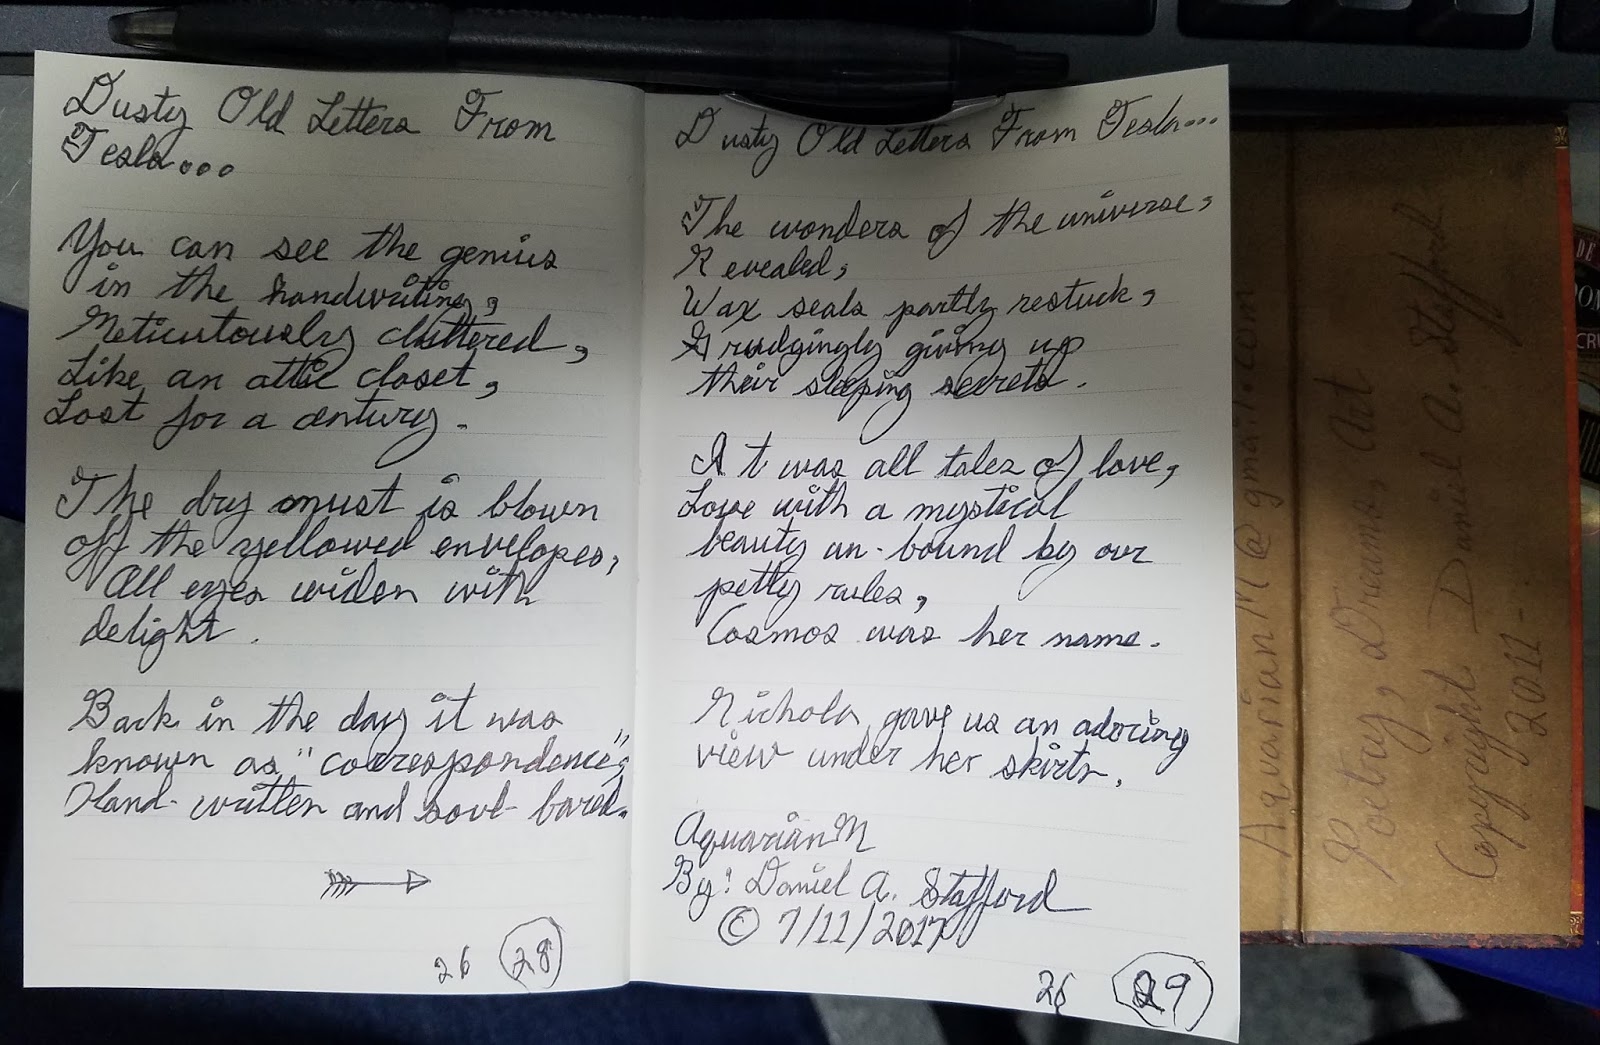 Dusty Old Letters From
Tesla...
You can see the genius
in the handwriting,
Meticulously cluttered,
Like an attic closet,
Lost for a century.
The dry must is blown
off the yellowed envelopes,
All eyes widen with
delight.
Back in the day it was
known as "correspondence",
Hand-written and soul-bared.
26 28
Dusty Old Letters From Tesla...
The wonders of the universe,
Revealed,
Wax seals partly restuck,
Grudgingly giving up
their sleeping secrets.
It was all tales of love,
Love with a mystical
beauty un-bound by our
petty rules,
Cosmos was her name.
Nichola, gave us an adoring
view under her skirts.
AquarianM
By: Daniel A. Stafford
© 7/11/2017
26 29
AquarianM@gmail.com
Poetry, Dreams, Art
Copyright Daniel A. Stafford
2011-
DE